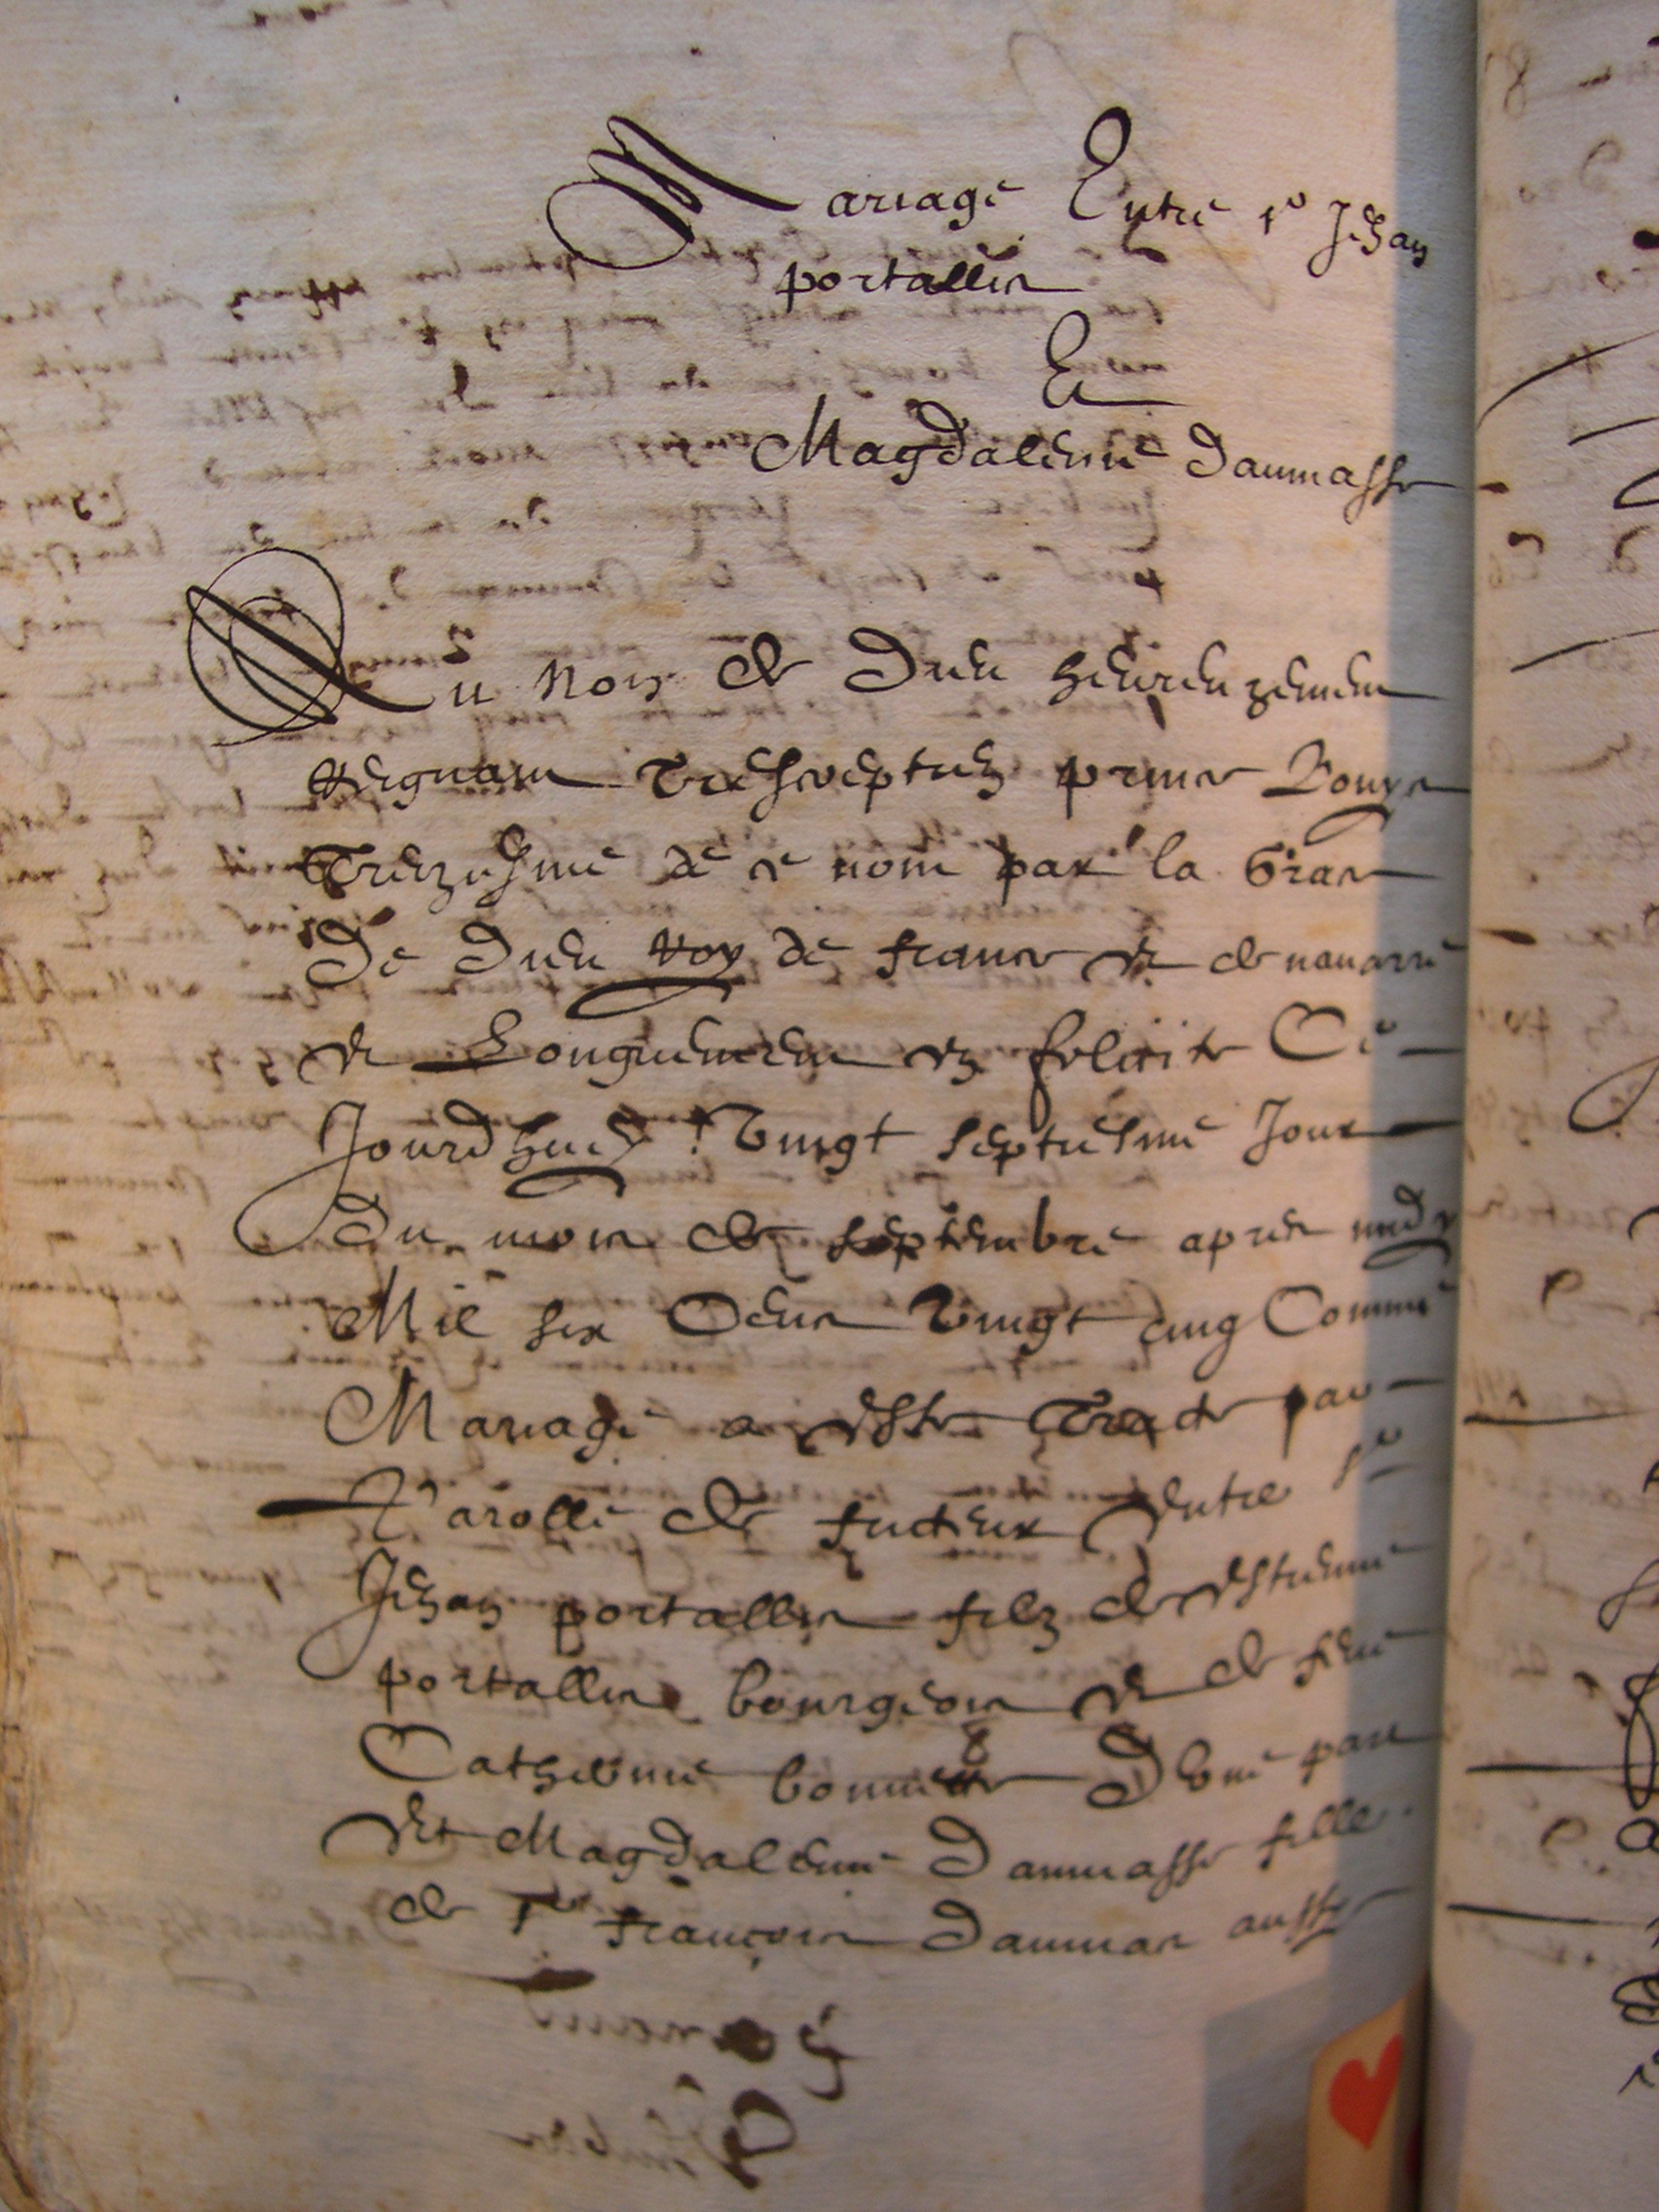 Mariage Entre sr Jehan
portallier
Et
Magdaleine daumasse
Au Nom de dieu heureuzement
Regnant Tres prince Louys
Treziesme de ce nom par la Grace
De dieu Roy de france et de nauarre
et Longuement en felicite Ce
Jourdhuey Vingt septiesme Jour
du mois de septembre apres midy
Mil six Cens Vingt cinq Comme
Mariage a este Traicte par
Parolle de fucteur entre sr
Jehan portallier filz de estienne
portallier bourgeois et de feue
Catherine bonnete Dune part
Et Magdaleine Daumasse fille
de sr francois daumas aussy